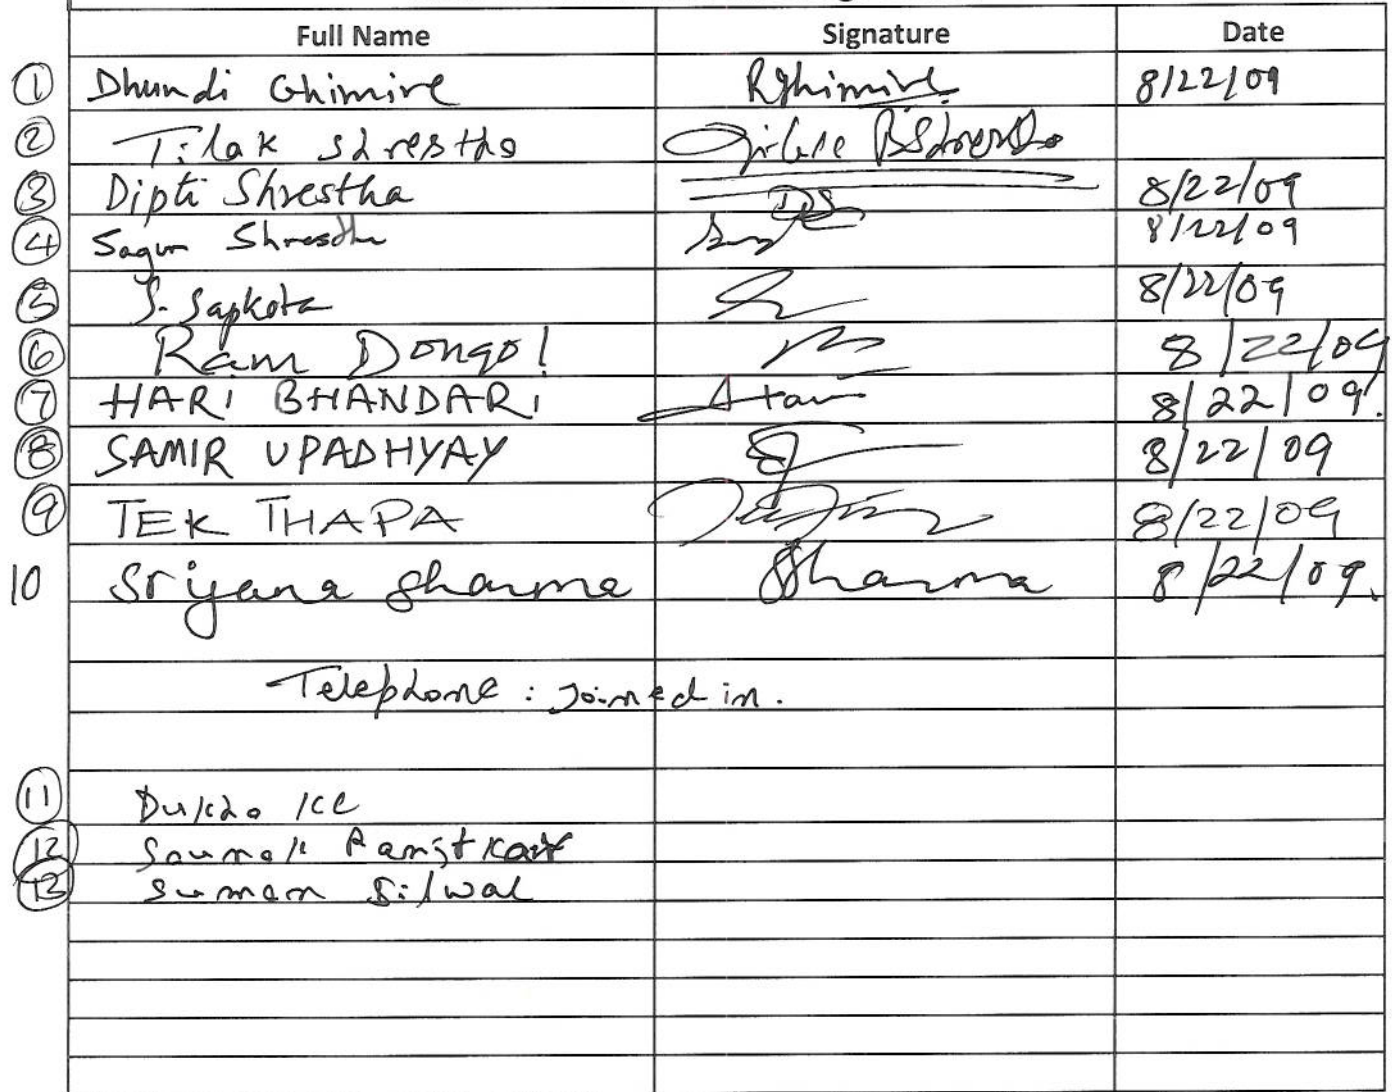 Full Name Signature Date
1 Dhundi Ghimire RGhimire 8/22/09
2 Tilak Shrestha
3 Dipti Shrestha DS 8/22/09
4 Sagun Shrestha 8/22/09
5 S. Sapkota 8/22/09
6 Ram Dongol 8/22/09
7 HARI BHANDARI 8/22/09
8 SAMIR UPADHYAY 8/22/09
9 TEK THAPA 8/22/09
10 Sriyana Sharma SSharma 8/22/09
Telephone: Joined in.
11 KC
12 Ranjitkar
13 Suman Silwal